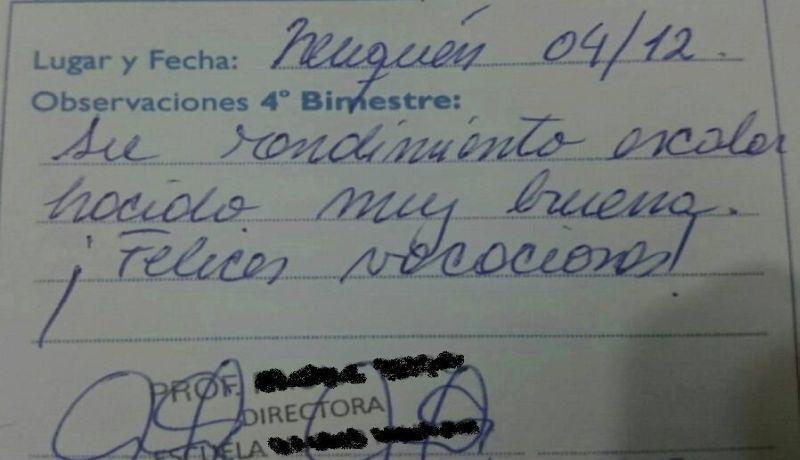 Lugar y Fecha: Neuquén 04/12.
Observaciones 4° Bimestre:
Su rondimiento escolar
hacido muy buena.
¡Felices vacaciosos!
PROF.
DIRECTORA
ESCUELA